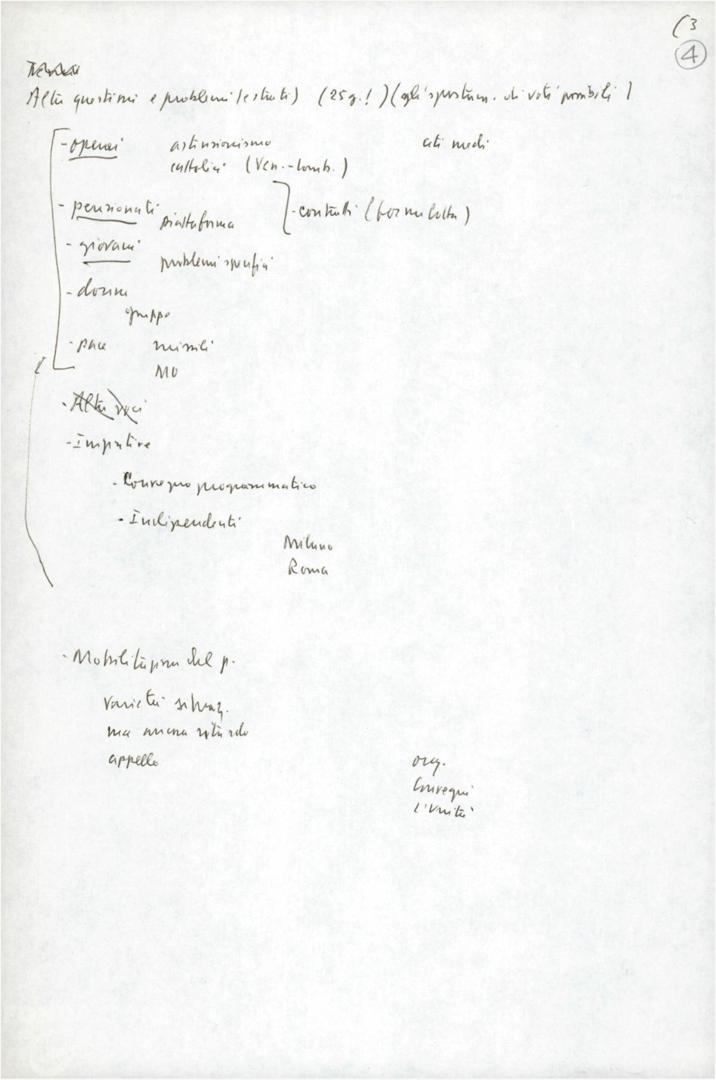 (3
4
Altre questioni e problemi (estratti) (25 g.!) (gli spostam. di voti possibili)
- operai astensionismo ceti medi
cattolici (Ven.-Lomb.)
- pensionati piattaforma - contratti (forme lotta)
- giovani problemi specifici
- donne
gruppo
- pace missili
MO
- Altre voci
- Iniziative
- Convegno programmatico
- Indipendenti
Milano
Roma
- Mobilitazione del p.
varietà situaz.
ma ancora ritardo
appello org.
Convegni
l'Unità